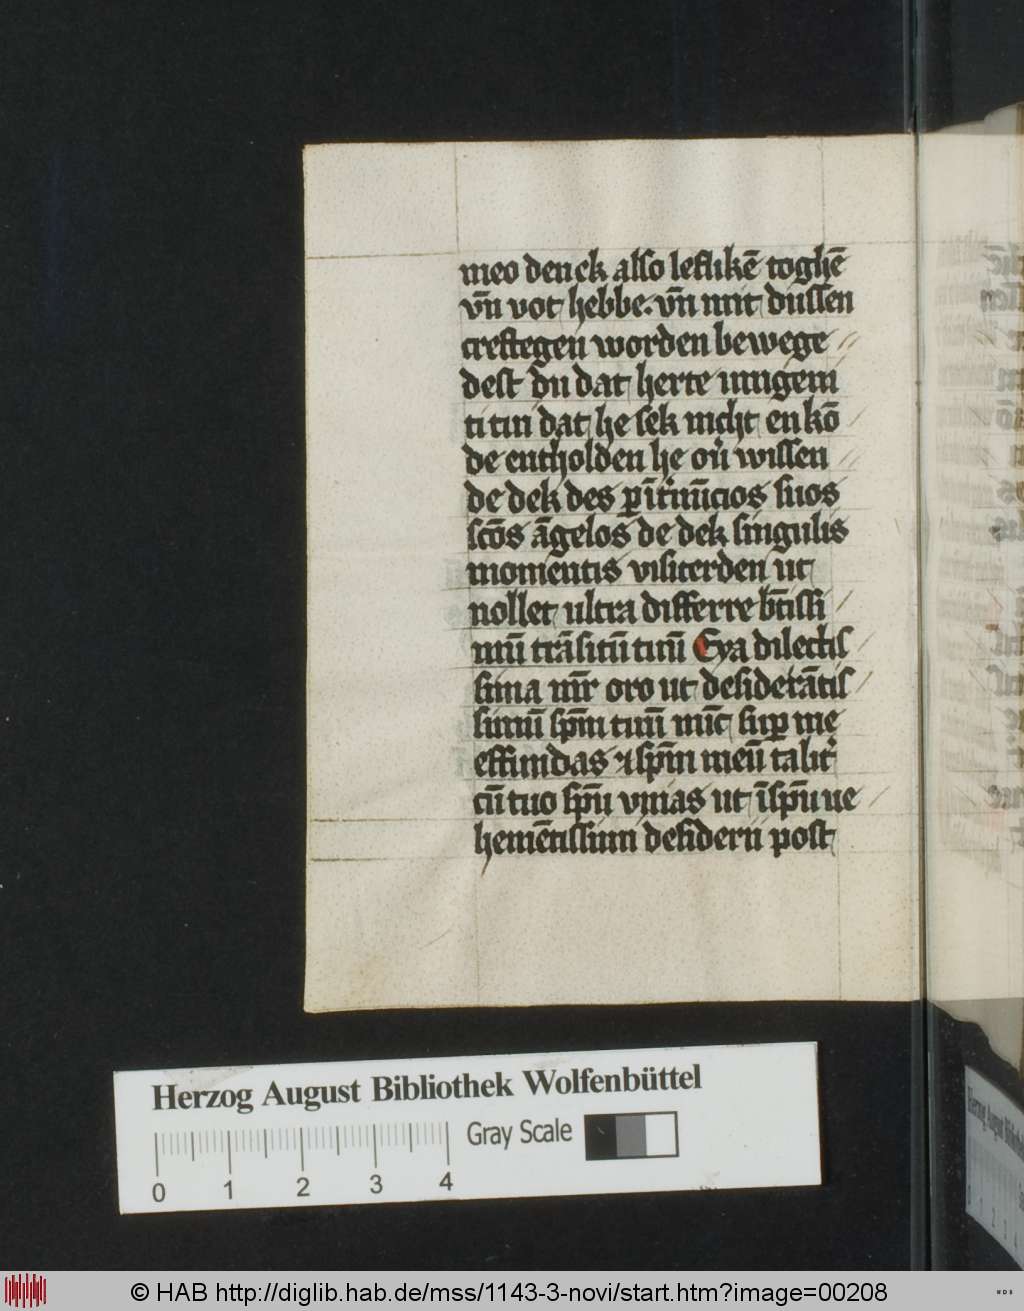 meo den ek also leflikē toghē
vn̄ vot hebbe. vn̄ mit dussen
creftegen worden bewege
dest du dat herte unigeni
ti tui dat he sek nicht en kō
de entholden he ou͛ wissen
de dek des
suos
scōs āgelos de dek singulis
momentis visiterden ut
nollet ultra differre bt̄issi
mū trāsitū tuū Eya dilectis
sima mr̄ oro ut desiderātis
simū spm̄ tuū nūc sup me
effundas ⁊ spm̄ meū talit͛
cū tuo spū vnias ut ī spū ve
hemētissimi desiderii post
Herzog August Bibliothek Wolfenbüttel
Gray Scale
0 1 2 3 4
© HAB http://diglib.hab.de/mss/1143-3-novi/start.htm?image=00208